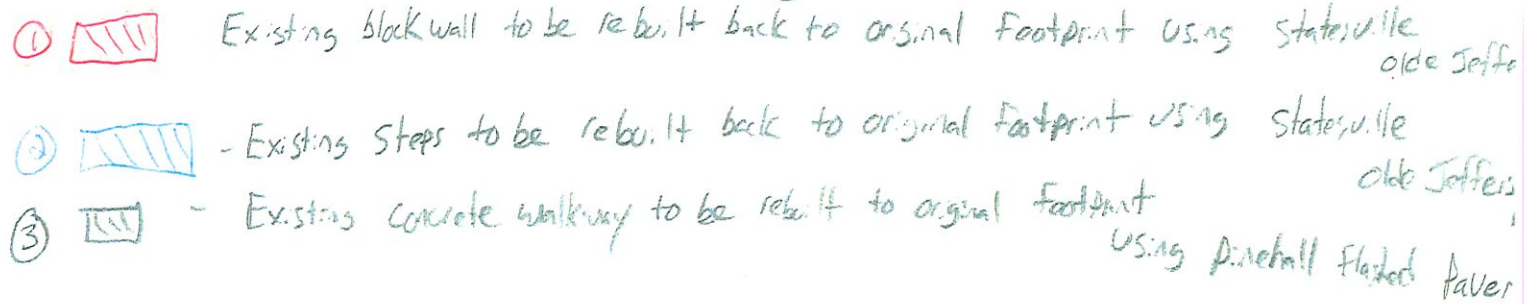 ① Existing block wall to be rebuilt back to orginal footprint using Statesville
olde Jeffe
② - Existing Steps to be rebuilt back to original footprint using Statesville
Olde Jeffers
③ - Existing Concrete walkway to be rebuilt to orginal footprint
using pinehall flashed Paver